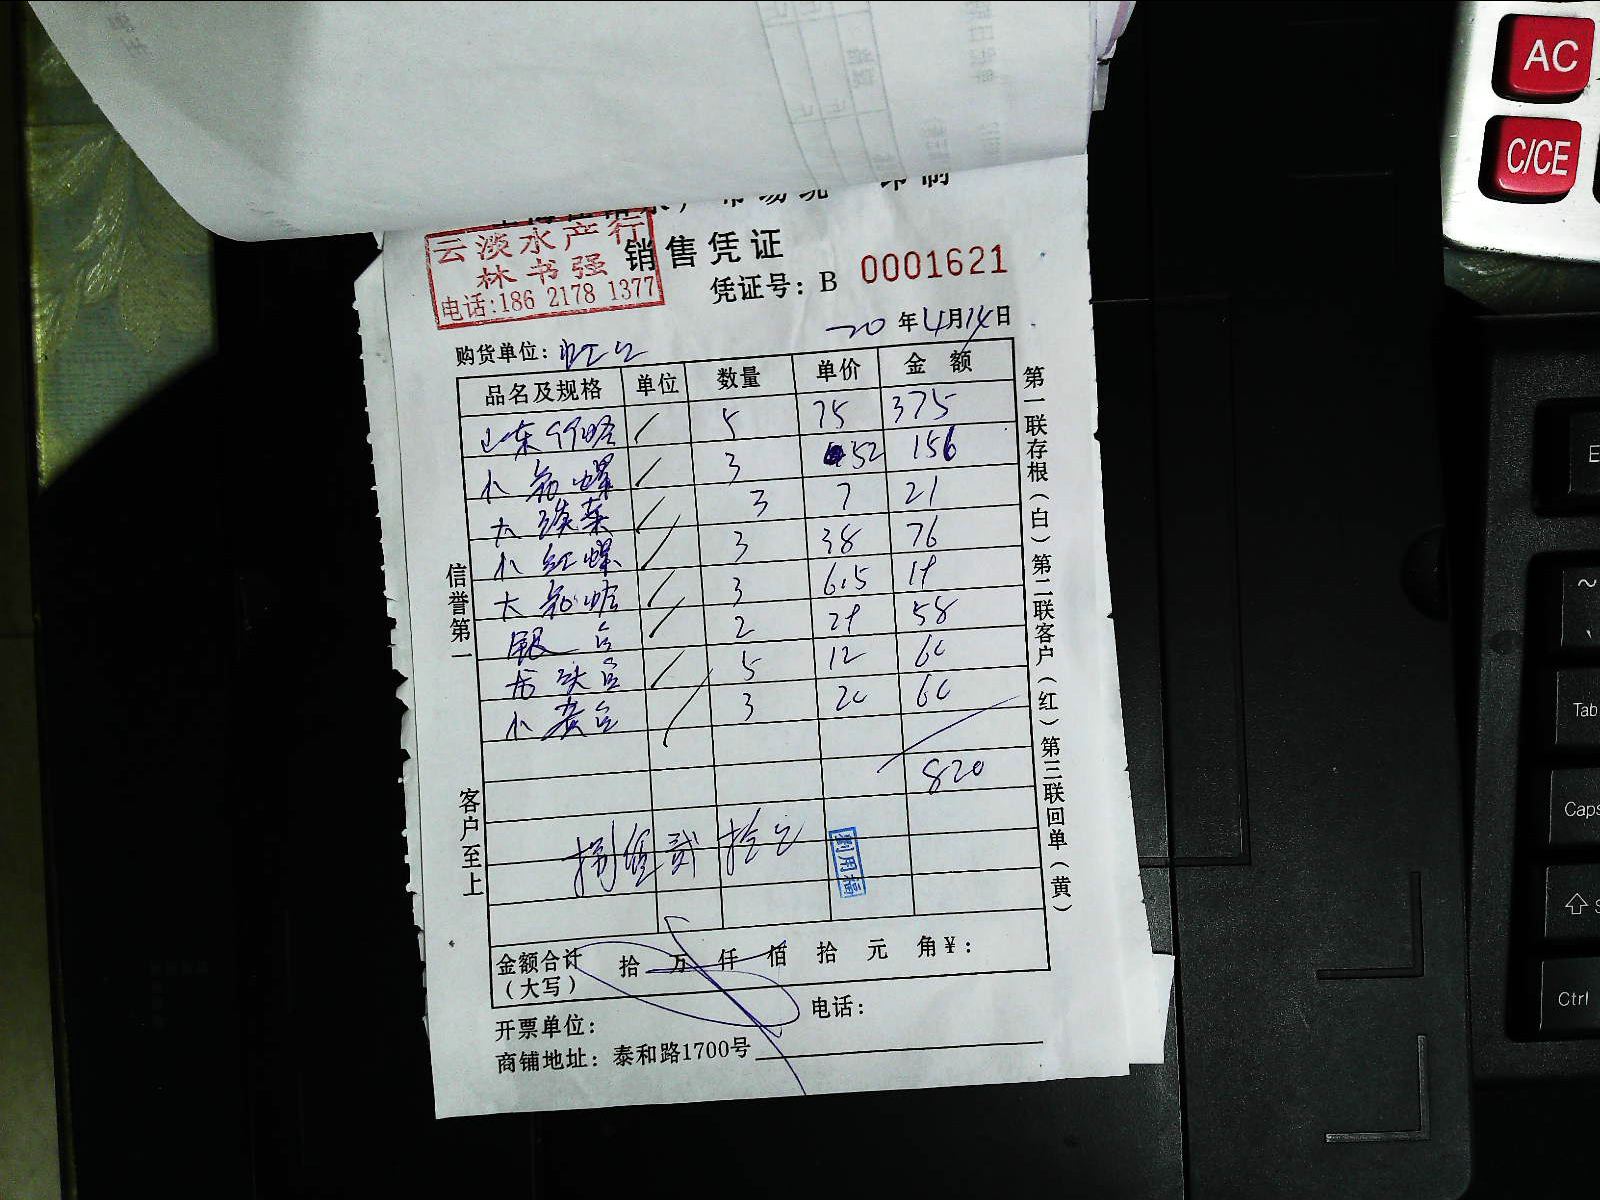 云淡水产行
林书强
电话:186 2178 1377
销售凭证
凭证号: B 0001621
20 年 4 月 14 日
购货单位:
品名及规格 单位 数量 单价 金额
山东 / 5 75 375
小 螺 / 3 52 156
大 菜 / 3 7 21
小红螺 / 3 38 76
大 蛤 / 3 6.5 19
银 / 2 29 58
/ 5 12 60
小黄 / 3 20 60
820
捌佰贰拾元
金额合计 拾 万 仟 佰 拾 元 角 ¥:
(大写)
开票单位: 电话:
商铺地址: 泰和路1700号
信誉第一
客户至上
第一联存根(白)第二联客户(红)第三联回单(黄)
AC
C/CE
Tab
Caps
Ctrl